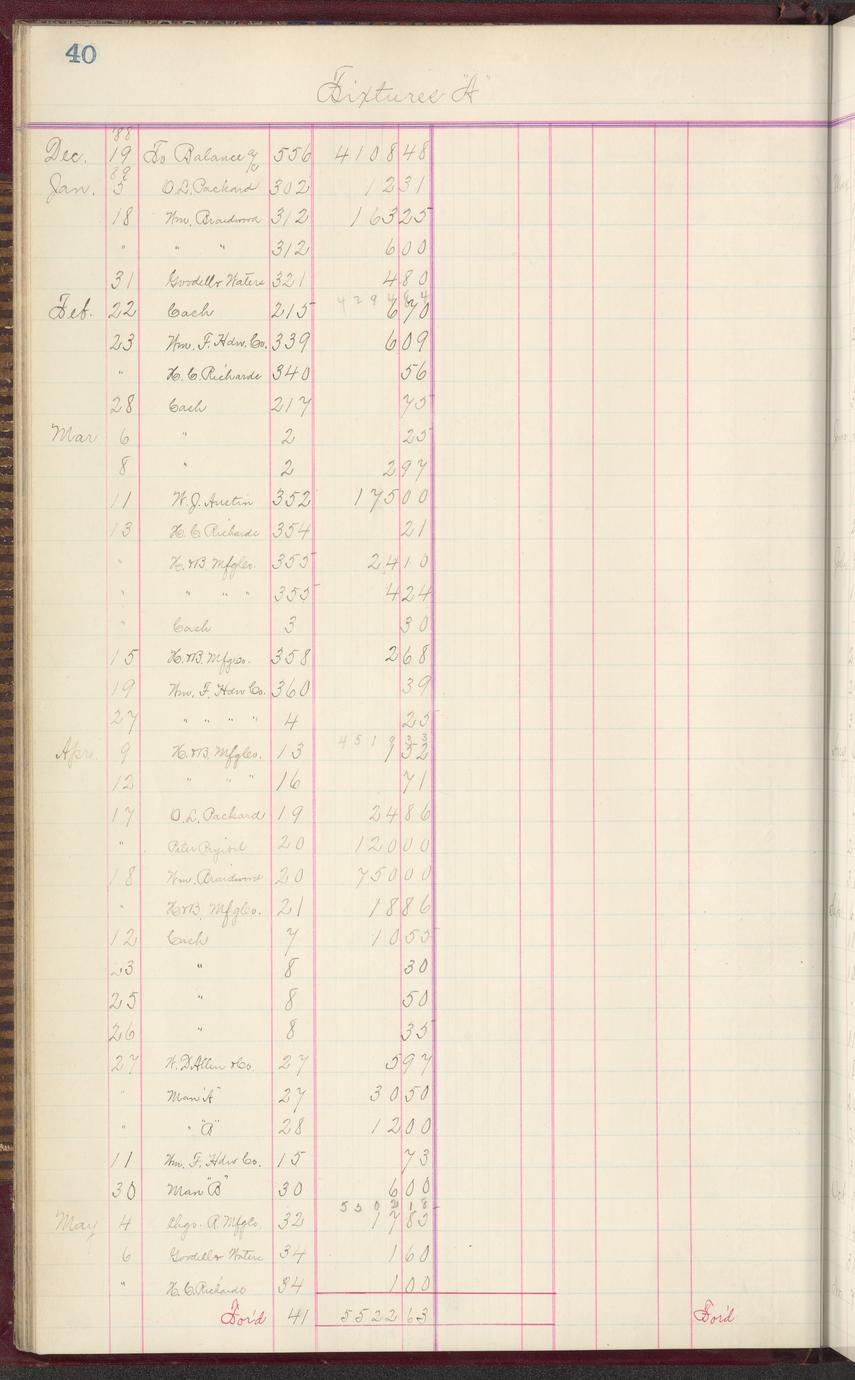 40
Fixtures "A"
'88
Dec. 19 To Balance a/c 556 4108 48
89
Jan. 5 O.L. Packard 302 12 31
18 Wm. Braidwood 312 163 25
" " " 312 6 00
31 Goodell & Waters 321 4 80
4294 84
Feb. 22 Cash 215 6 70
23 Wm. F. Hdw. Co. 339 6 09
" H.C. Richards 340 56
28 Cash 217 75
Mar 6 " 2 25
8 " 2 2 97
11 W.J. Austin 352 175 00
13 H.C. Richards 354 21
" H. & B. Mfg Co. 355 24 10
" " " " 355 4 24
" Cash 3 30
15 H. & B. Mfg Co. 358 2 68
19 Wm. F. Hdw Co. 360 39
27 " " " " 4 25
4519 33
Apr. 9 H. & B. Mfg Co. 13 1 52
12 " " " 16 71
17 O.L. Packard 19 24 86
" Peter 20 120 00
18 Wm. Braidwood 20 750 00
" H & B. Mfg Co. 21 18 86
12 Cash 7 10 55
23 " 8 30
25 " 8 50
26 " 8 35
27 W.D. Allen & Co. 27 5 97
" Man "A" 27 30 50
" " "A" 28 12 00
11 Wm. F. Hdw Co. 15 73
30 Man "B" 30 6 00
5502 18
May 4 Chgo. R. Mfg Co. 32 17 85
6 Goodell & Waters 34 1 60
" H.C. Richards 34 1 00
For'd 41 5522 63 For'd